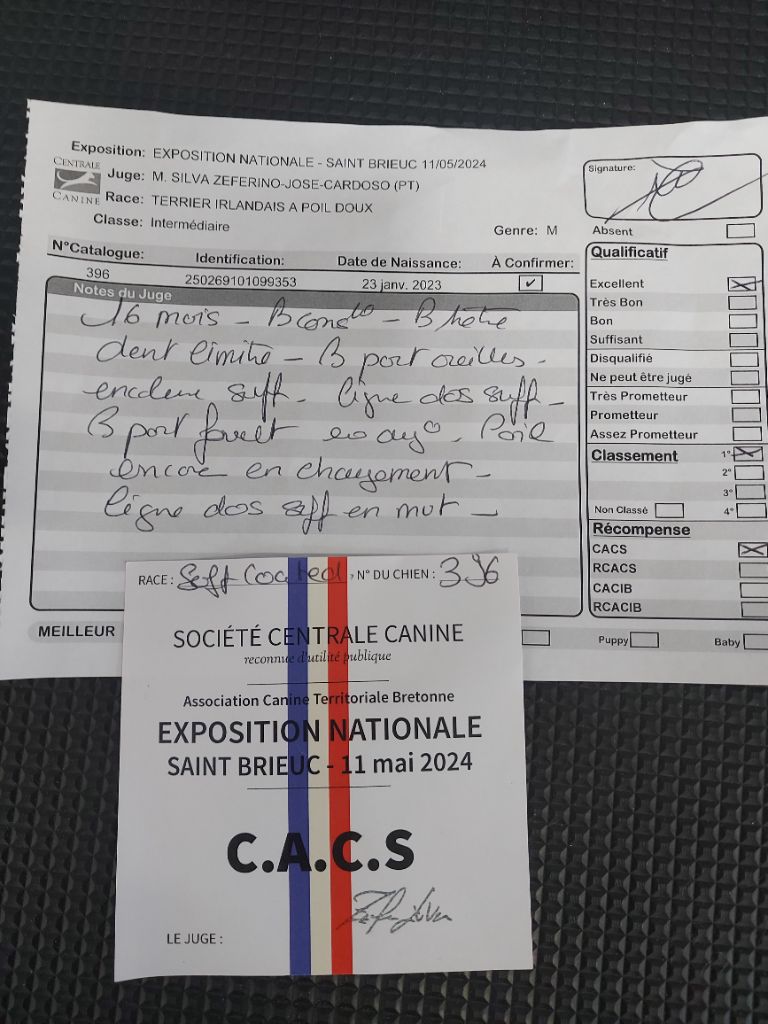 Exposition: EXPOSITION NATIONALE - SAINT BRIEUC 11/05/2024
CENTRALE CANINE
Juge: M. SILVA ZEFERINO-JOSE-CARDOSO (PT)
Race: TERRIER IRLANDAIS A POIL DOUX
Classe: Intermédiaire
Genre: M
N°Catalogue: Identification: Date de Naissance: À Confirmer:
396 250269101099353 23 janv. 2023 ✔
Notes du Juge
16 mois - B const° - B tête
dent limite - B port oreilles -
encolure suff - ligne dos suff -
B port fouet en Poil
encore en changement -
ligne dos suff en mvt -
MEILLEUR
Puppy
Baby
Signature:
Absent
Qualificatif
Excellent
Très Bon
Bon
Suffisant
Disqualifié
Ne peut être jugé
Très Prometteur
Prometteur
Assez Prometteur
Classement 1°
2°
3°
Non Classé 4°
Récompense
CACS
RCACS
CACIB
RCACIB
RACE : Soft Coated N° DU CHIEN : 396
SOCIÉTÉ CENTRALE CANINE
reconnue d'utilité publique
Association Canine Territoriale Bretonne
EXPOSITION NATIONALE
SAINT BRIEUC - 11 mai 2024
C.A.C.S
LE JUGE :